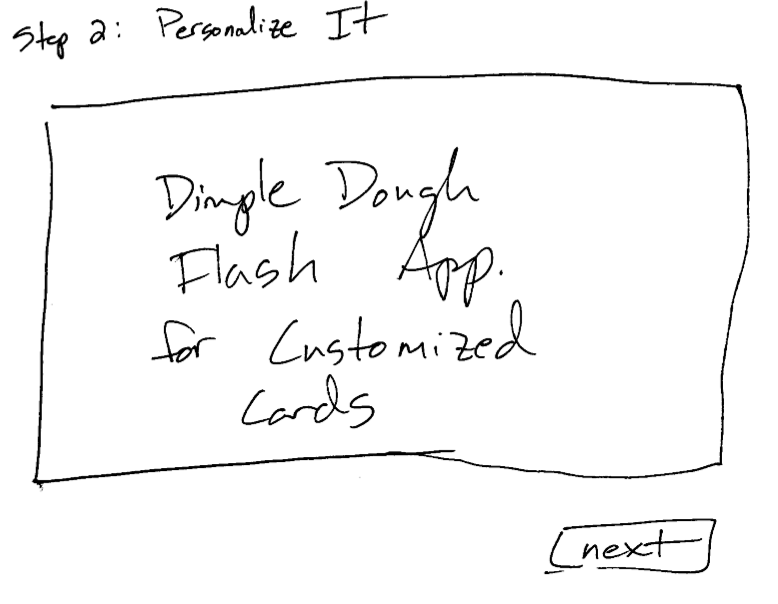 Step 2: Personalize It
Dimple Dough
Flash App.
for Customized
Cards
next